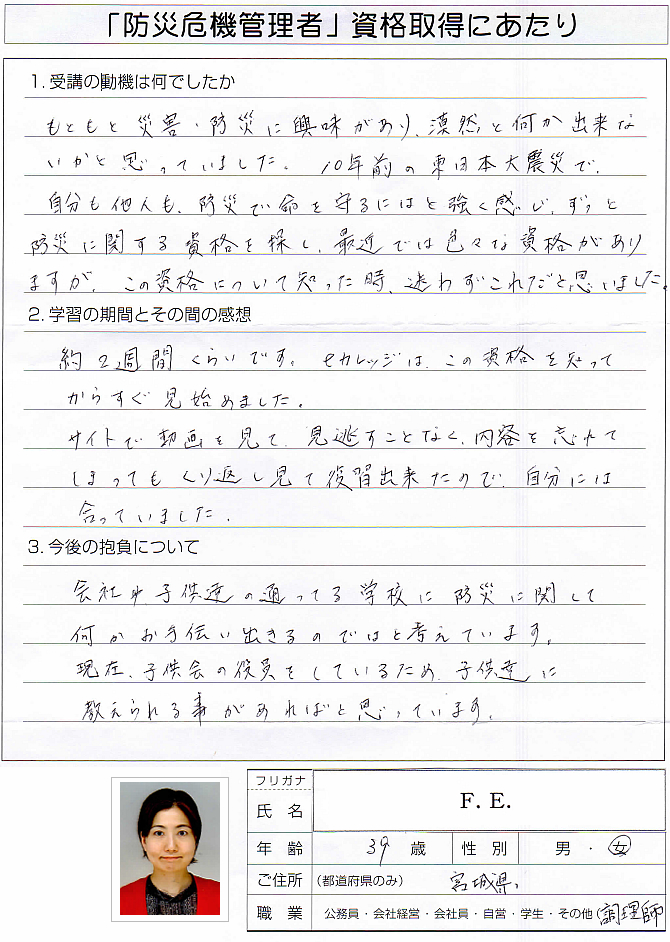 「防災危機管理者」資格取得にあたり
1. 受講の動機は何でしたか
もともと災害・防災に興味があり、漠然と何か出来な
いかと思っていました。10年前の東日本大震災で、
自分も他人も、防災で命を守るにはと強く感じ、ずっと
防災に関する資格を探し、最近では色々な資格があり
ますが、この資格について知った時、迷わずこれだと思いました。
2. 学習の期間とその間の感想
約2週間くらいです。セカレッジは、この資格を知って
からすぐ見始めました。
サイトで動画を見て、見逃すことなく、内容を忘れて
しまってもくり返し見て復習出来たので、自分には
合っていました。
3. 今後の抱負について
会社や子供達の通ってる学校に防災に関して
何かお手伝い出きるのではと考えています。
現在、子供会の役員をしているため、子供達に
教えられる事があればと思っています。
フリガナ
氏 名 F. E.
年 齢 39 歳 性 別 男 ・ 女
ご住所 (都道府県のみ) 宮城県
職 業 公務員・会社経営・会社員・自営・学生・その他(調理師